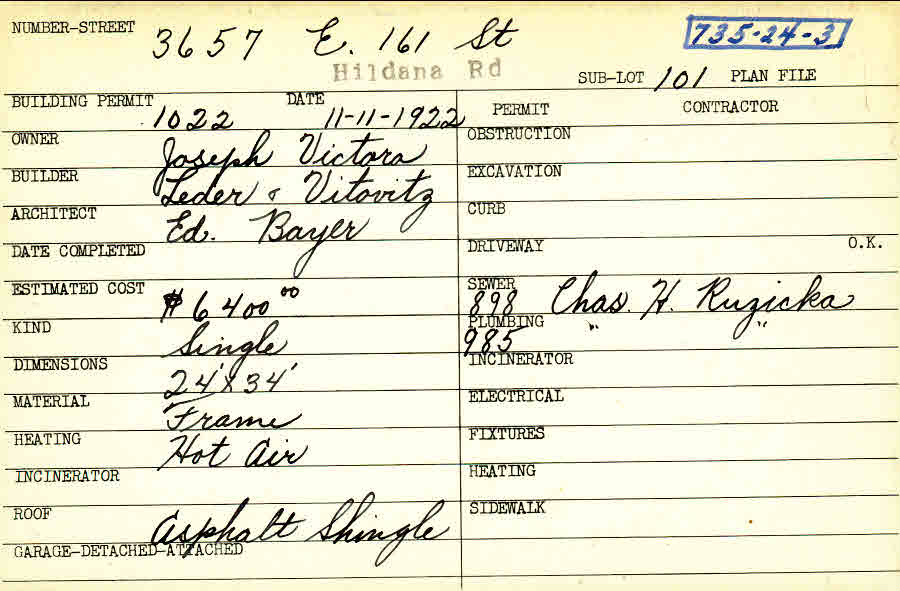 NUMBER-STREET 3657 E. 161 St 735-24-3
Hildana Rd SUB-LOT 101 PLAN FILE
BUILDING PERMIT 1022 DATE 11-11-1922 PERMIT CONTRACTOR
OWNER Joseph Victora OBSTRUCTION
BUILDER Leder & Vitovitz EXCAVATION
ARCHITECT Ed. Bayer CURB
DATE COMPLETED DRIVEWAY O.K.
ESTIMATED COST $6400.00 SEWER 898 Chas. H. Ruzicka
KIND Single PLUMBING 985 " "
DIMENSIONS 24'x34' INCINERATOR
MATERIAL Frame ELECTRICAL
HEATING Hot Air FIXTURES
INCINERATOR HEATING
ROOF Asphalt Shingle SIDEWALK
GARAGE-DETACHED-ATTACHED